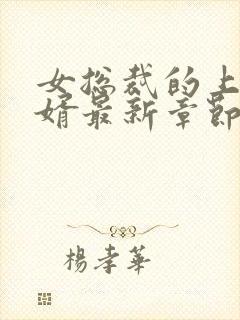 女总裁的上
婿最新章节
杨孝华